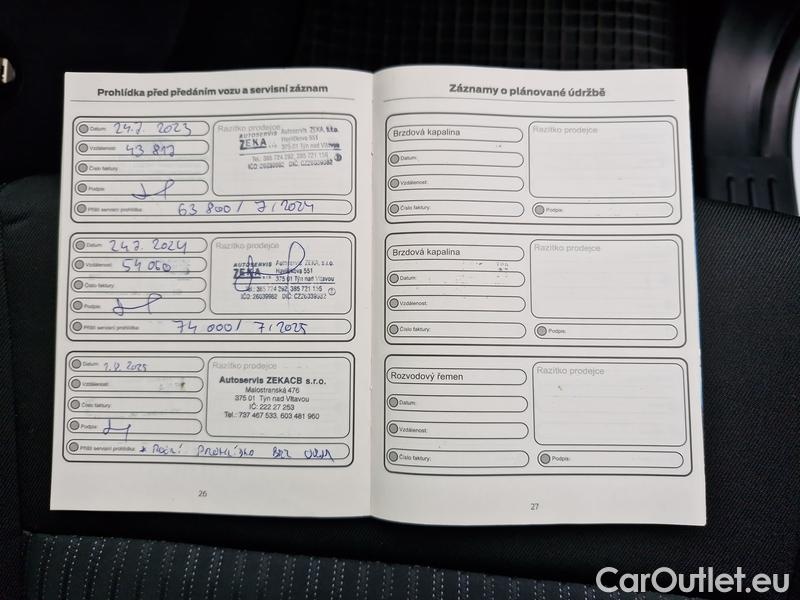 Prohlídka před předáním vozu a servisní záznam
Datum: 24.7. 2023
Razítko prodejce
AUTOSERVIS ZEKA, s.r.o.
ZEKA s.r.o. Havlíčkova 551
375 01 Týn nad Vltavou
Tel.: 385 724 292, 385 721 156
IČO: 26039982 DIČ: CZ26039982
Vzdálenost: 43 817
Číslo faktury:
Podpis:
Příští servisní prohlídka: 63 800 / 7/2024
Datum: 24.7. 2024
Razítko prodejce
AUTOSERVIS ZEKA, s.r.o.
ZEKA s.r.o. Havlíčkova 551
375 01 Týn nad Vltavou
Tel.: 385 724 292, 385 721 156
IČO: 26039982 DIČ: CZ26039982
Vzdálenost: 54 060
Číslo faktury:
Podpis:
Příští servisní prohlídka: 74 000 / 7/2025
Datum: 2025
Razítko prodejce
Autoservis ZEKACB s.r.o.
Malostranská 476
375 01 Týn nad Vltavou
IČ: 222 27 253
Tel.: 737 467 533, 603 481 960
Vzdálenost:
Číslo faktury:
Podpis:
Příští servisní prohlídka: * ROČNÍ PROHLÍDKA BEZ
26
Záznamy o plánované údržbě
Brzdová kapalina
Razítko prodejce
Datum:
Vzdálenost:
Číslo faktury:
Podpis:
Brzdová kapalina
Razítko prodejce
Datum:
Vzdálenost:
Číslo faktury:
Podpis:
Rozvodový řemen
Razítko prodejce
Datum:
Vzdálenost:
Číslo faktury:
Podpis:
27
CarOutlet.eu